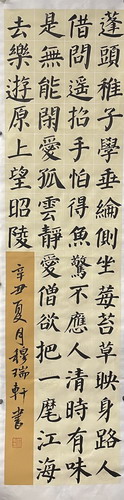 蓬頭稚子學垂綸側坐莓苔草映身路人
借問遥招手怕得魚驚不應人清時有味
是無能閑愛孤雲靜愛僧欲把一麾江海
去樂遊原上望昭陵
辛丑夏月穆瑞軒書